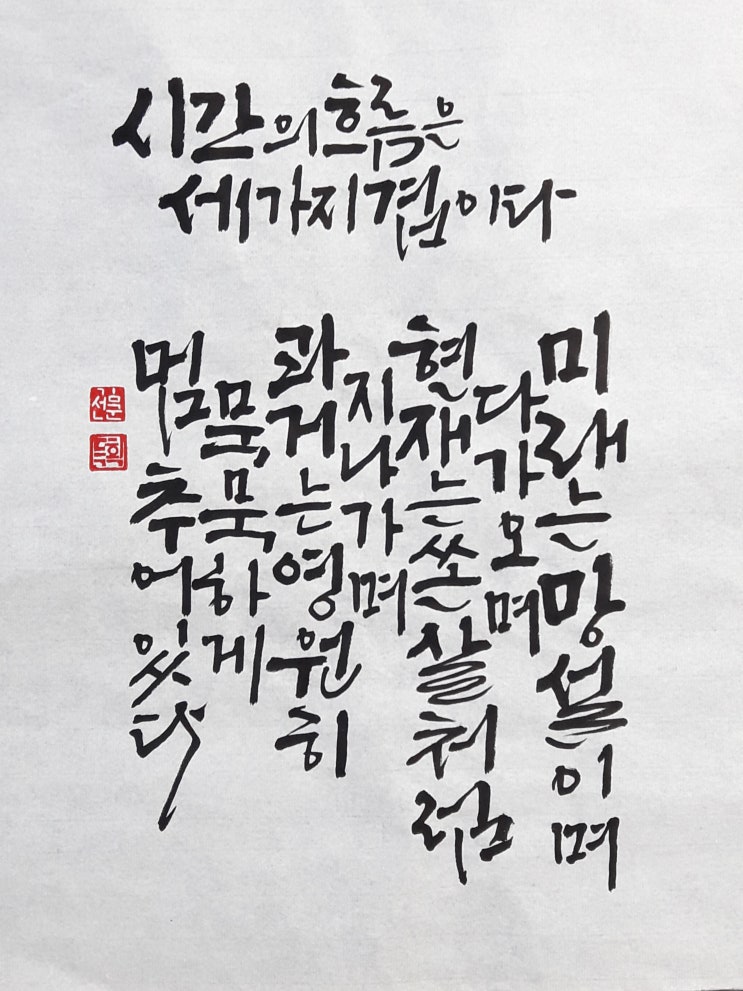 시간의흐름은
세가지겹이다
미래는망설이며
다가오며
현재는쏜살처럼
지나가며
과거는영원히
묵묵하게
멈추어있다